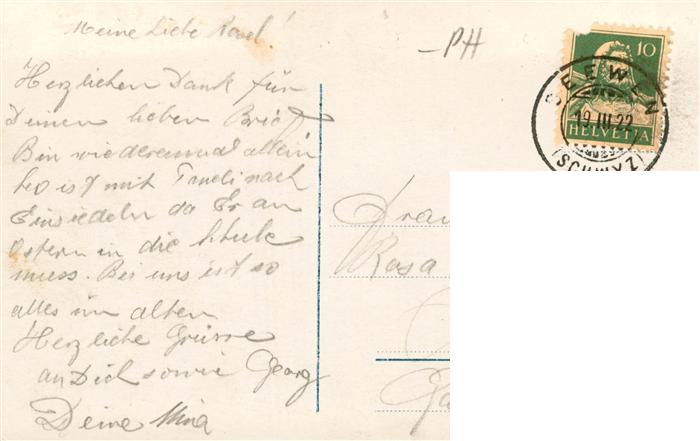 Meine Liebe Rosel!
Herzlichen Dank für
Deinen lieben Brief
Bin wiedereinmal allein
Leo ist mit Trudi nach
Einsiedeln da Er an
Ostern in die Schule
muss. Bei uns ist so
alles im alten
Herzliche Grüsse
an Dich sowie Georg
Deine Mina
-PH
10
HELVETIA
SEEWEN
19.III.22
(SCHWYZ)
Frau
Rosa